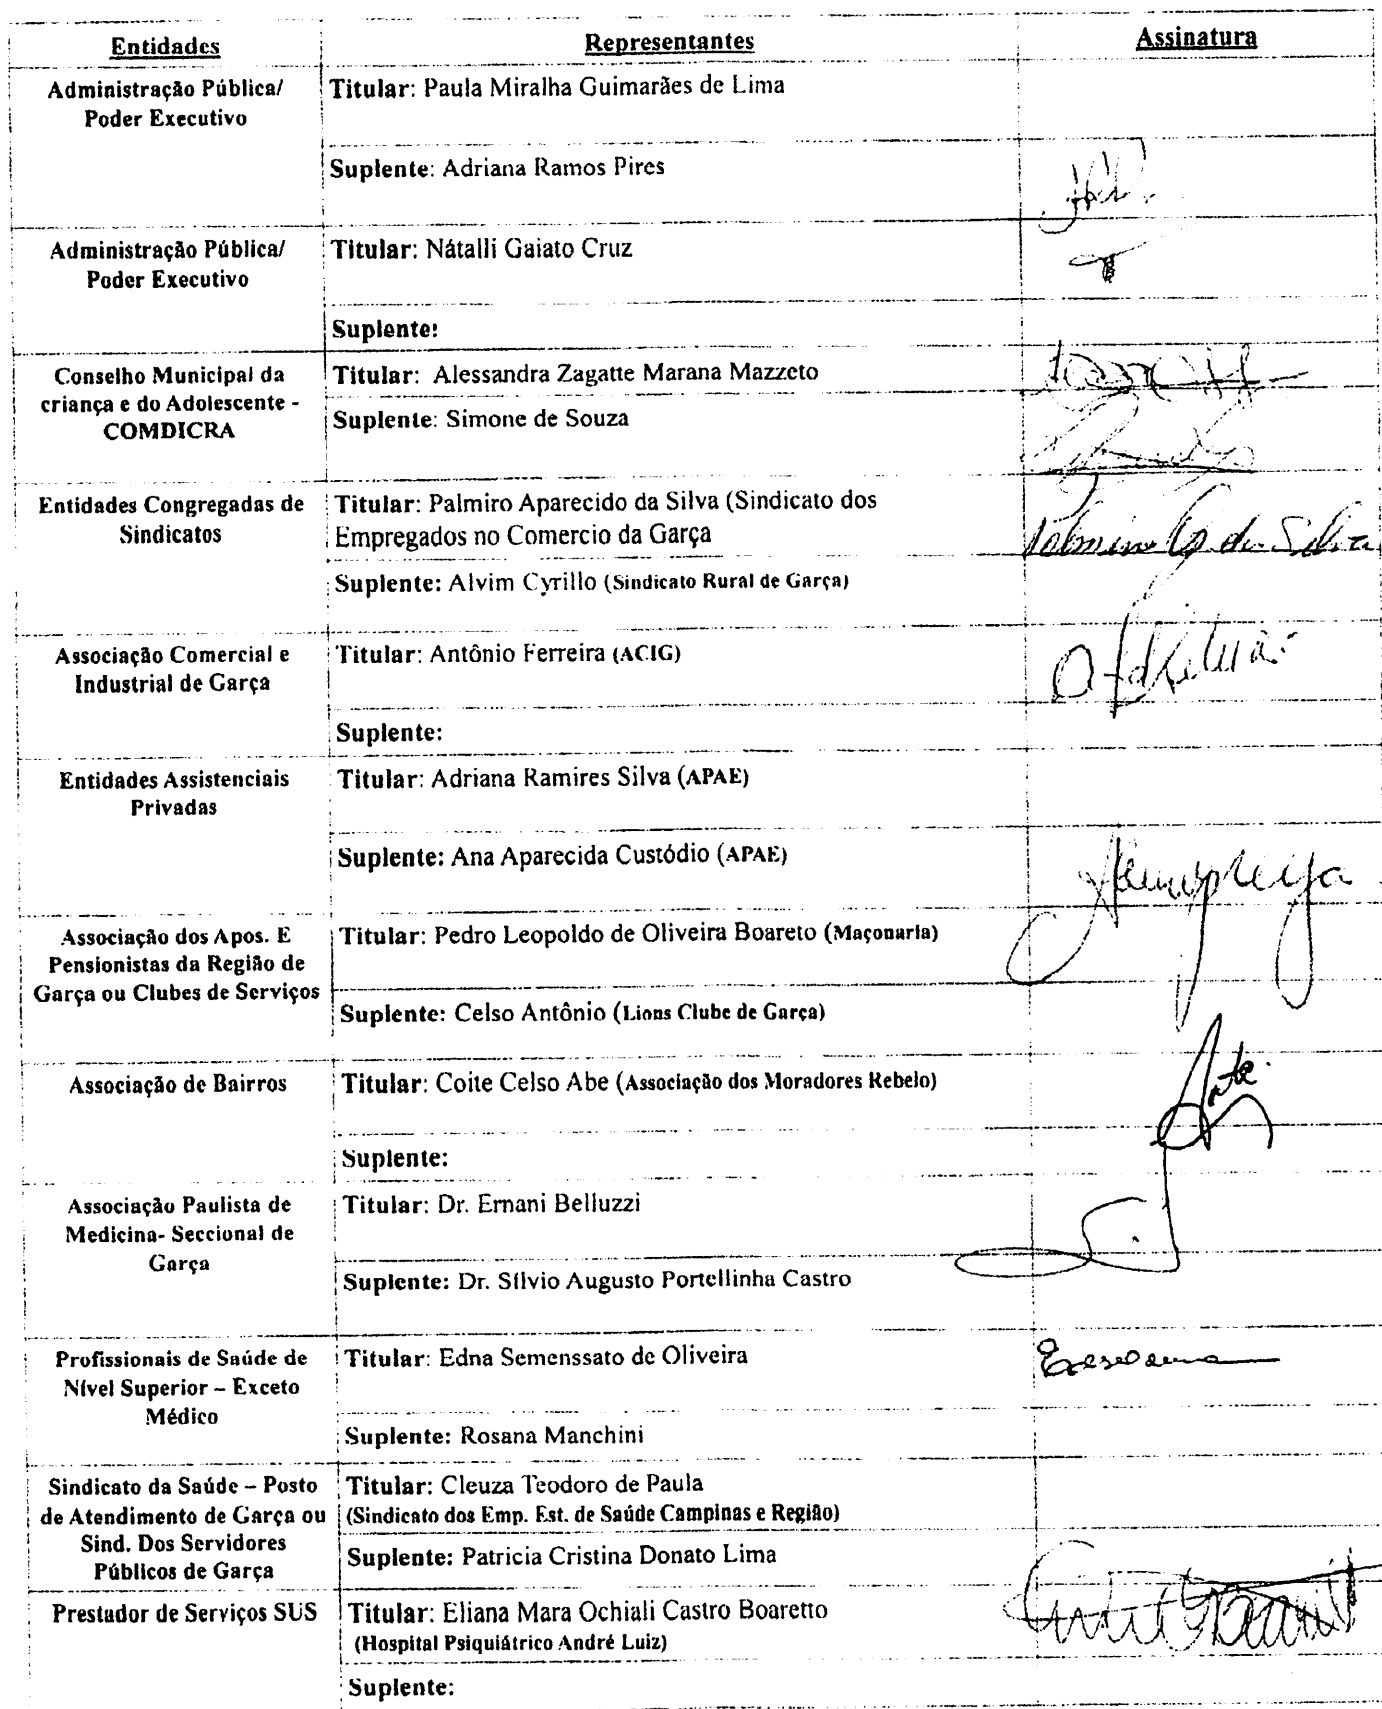 Entidades Representantes Assinatura
Administração Pública/
Poder Executivo
Titular: Paula Miralha Guimarães de Lima
Suplente: Adriana Ramos Pires
Administração Pública/
Poder Executivo
Titular: Nátalli Gaiato Cruz
Suplente:
Conselho Municipal da
criança e do Adolescente -
COMDICRA
Titular: Alessandra Zagatte Marana Mazzeto
Suplente: Simone de Souza
Entidades Congregadas de
Sindicatos
Titular: Palmiro Aparecido da Silva (Sindicato dos
Empregados no Comercio da Garça
Palmiro Ap da Silva
Suplente: Alvim Cyrillo (Sindicato Rural de Garça)
Associação Comercial e
Industrial de Garça
Titular: Antônio Ferreira (ACIG)
Suplente:
Entidades Assistenciais
Privadas
Titular: Adriana Ramires Silva (APAE)
Suplente: Ana Aparecida Custódio (APAE)
Associação dos Apos. E
Pensionistas da Região de
Garça ou Clubes de Serviços
Titular: Pedro Leopoldo de Oliveira Boareto (Maçonaria)
Suplente: Celso Antônio (Lions Clube de Garça)
Associação de Bairros
Titular: Coite Celso Abe (Associação dos Moradores Rebelo)
Suplente:
Associação Paulista de
Medicina- Seccional de
Garça
Titular: Dr. Ernani Belluzzi
Suplente: Dr. Sílvio Augusto Portellinha Castro
Profissionais de Saúde de
Nível Superior – Exceto
Médico
Titular: Edna Semenssato de Oliveira
Suplente: Rosana Manchini
Sindicato da Saúde – Posto
de Atendimento de Garça ou
Sind. Dos Servidores
Públicos de Garça
Titular: Cleuza Teodoro de Paula
(Sindicato dos Emp. Est. de Saúde Campinas e Região)
Suplente: Patricia Cristina Donato Lima
Prestador de Serviços SUS
Titular: Eliana Mara Ochiali Castro Boaretto
(Hospital Psiquiátrico André Luiz)
Suplente: